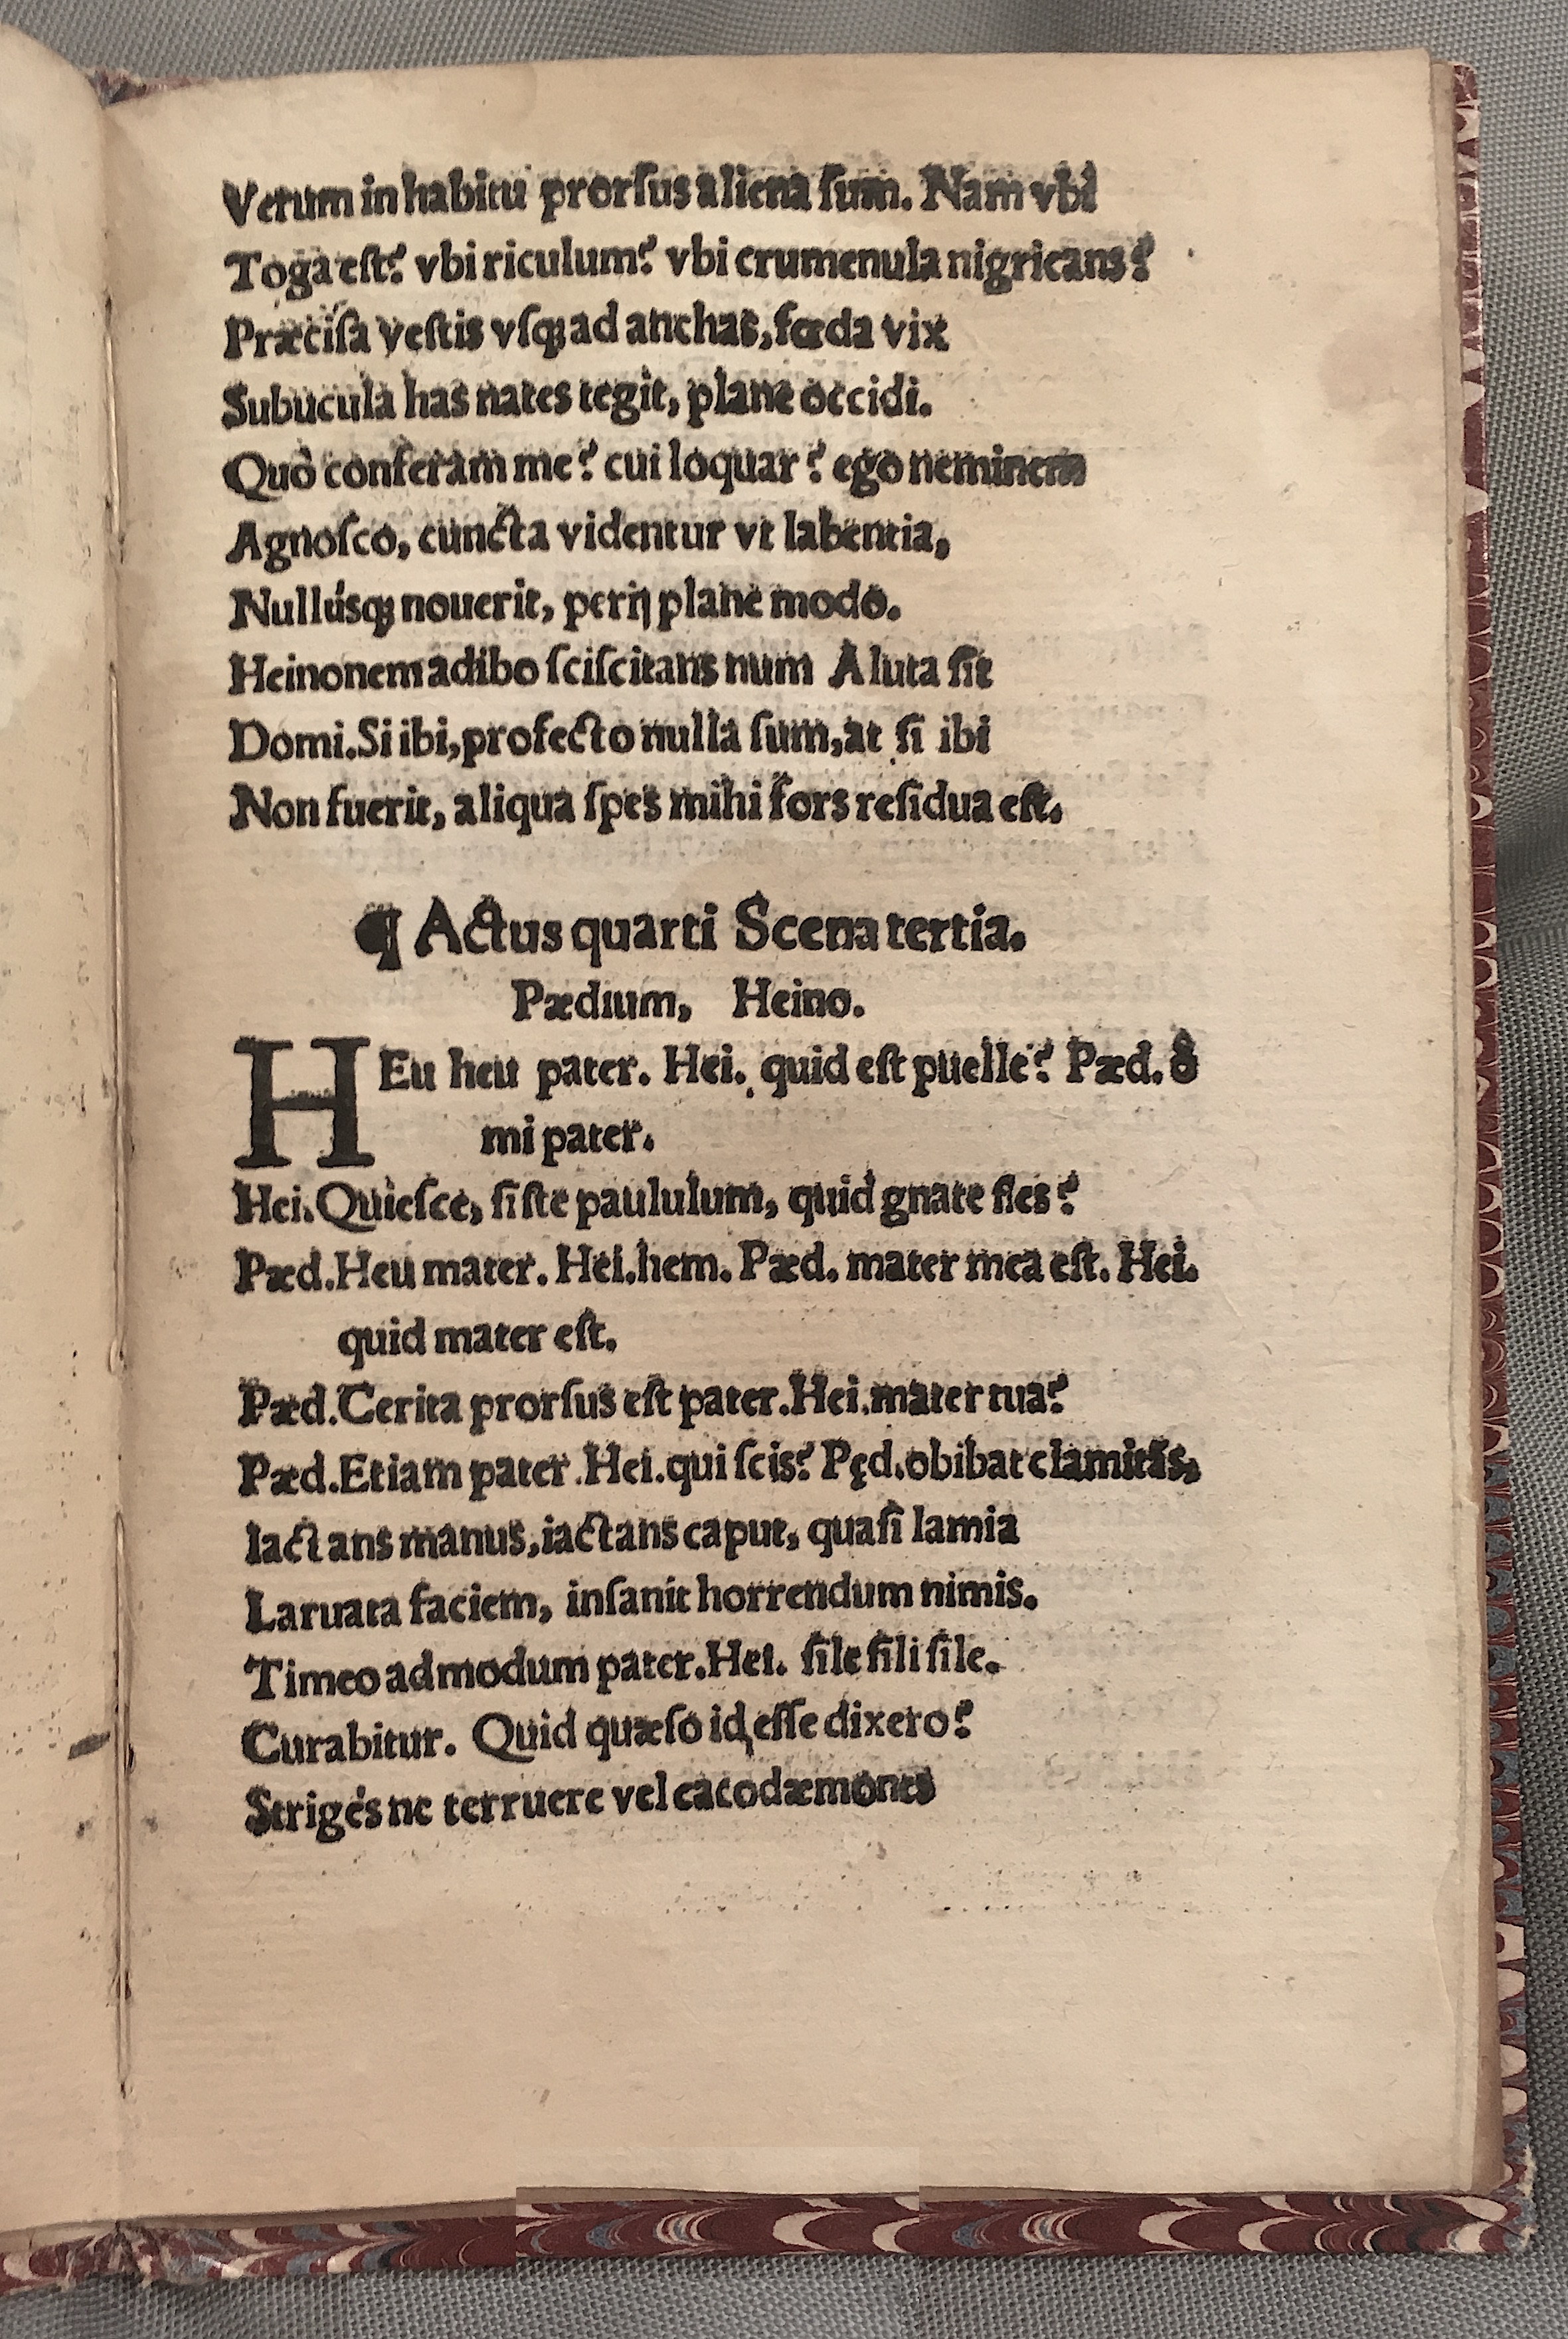 Verum in habitu prorſus aliena ſum. Nam vbi
Toga eſt? vbi riculum? vbi crumenula nigricans?
Præciſa veſtis vſq; ad anchas, fœda vix
Subucula has nates tegit, plane occidi.
Quò conferam me? cui loquar? ego neminem
Agnoſco, cuncta videntur vt labentia,
Nullúsq; nouerit, perij plane modo.
Heinonem adibo ſciſcitans num Aluta ſit
Domi. Si ibi, profecto nulla ſum, at ſi ibi
Non fuerit, aliqua ſpes mihi fors reſidua eſt.
¶ Actus quarti Scena tertia.
Pædium, Heino.
HEu heu pater. Hei. quid eſt puelle? Pæd. ô
mi pater.
Hei. Quieſce, ſiſte paululum, quid gnate fles?
Pæd. Heu mater. Hei. hem. Pæd. mater mea eſt. Hei.
quid mater eſt.
Pæd. Cerita prorſus eſt pater. Hei. mater tua?
Pæd. Etiam pater. Hei. qui ſcis? Pęd. obibat clamitãs,
Iactans manus, iactans caput, quaſi lamia
Laruata faciem, inſanit horrendum nimis.
Timeo admodum pater. Hei. ſile fili ſile.
Curabitur. Quid quæſo id eſſe dixero?
Strigés ne terruere vel cacodæmones